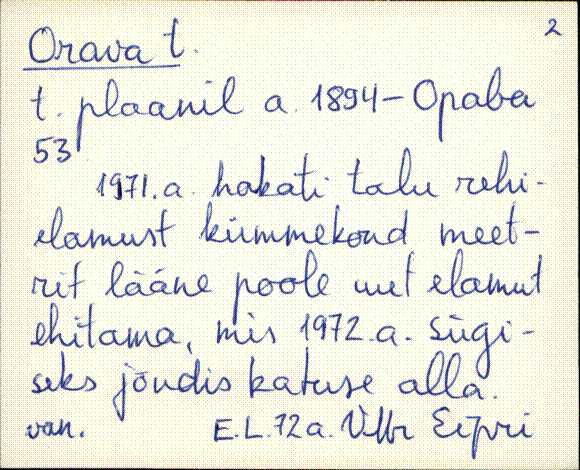 2
Orava t.
t. plaanil a. 1894 - Орава
53
1971. a. hakati talu rehi-
elamust kümmekond meet-
rit lääne poole uut elamut
ehitama, mis 1972. a. sügi-
seks jõudis katuse alla.
van. E.L. 72 a.